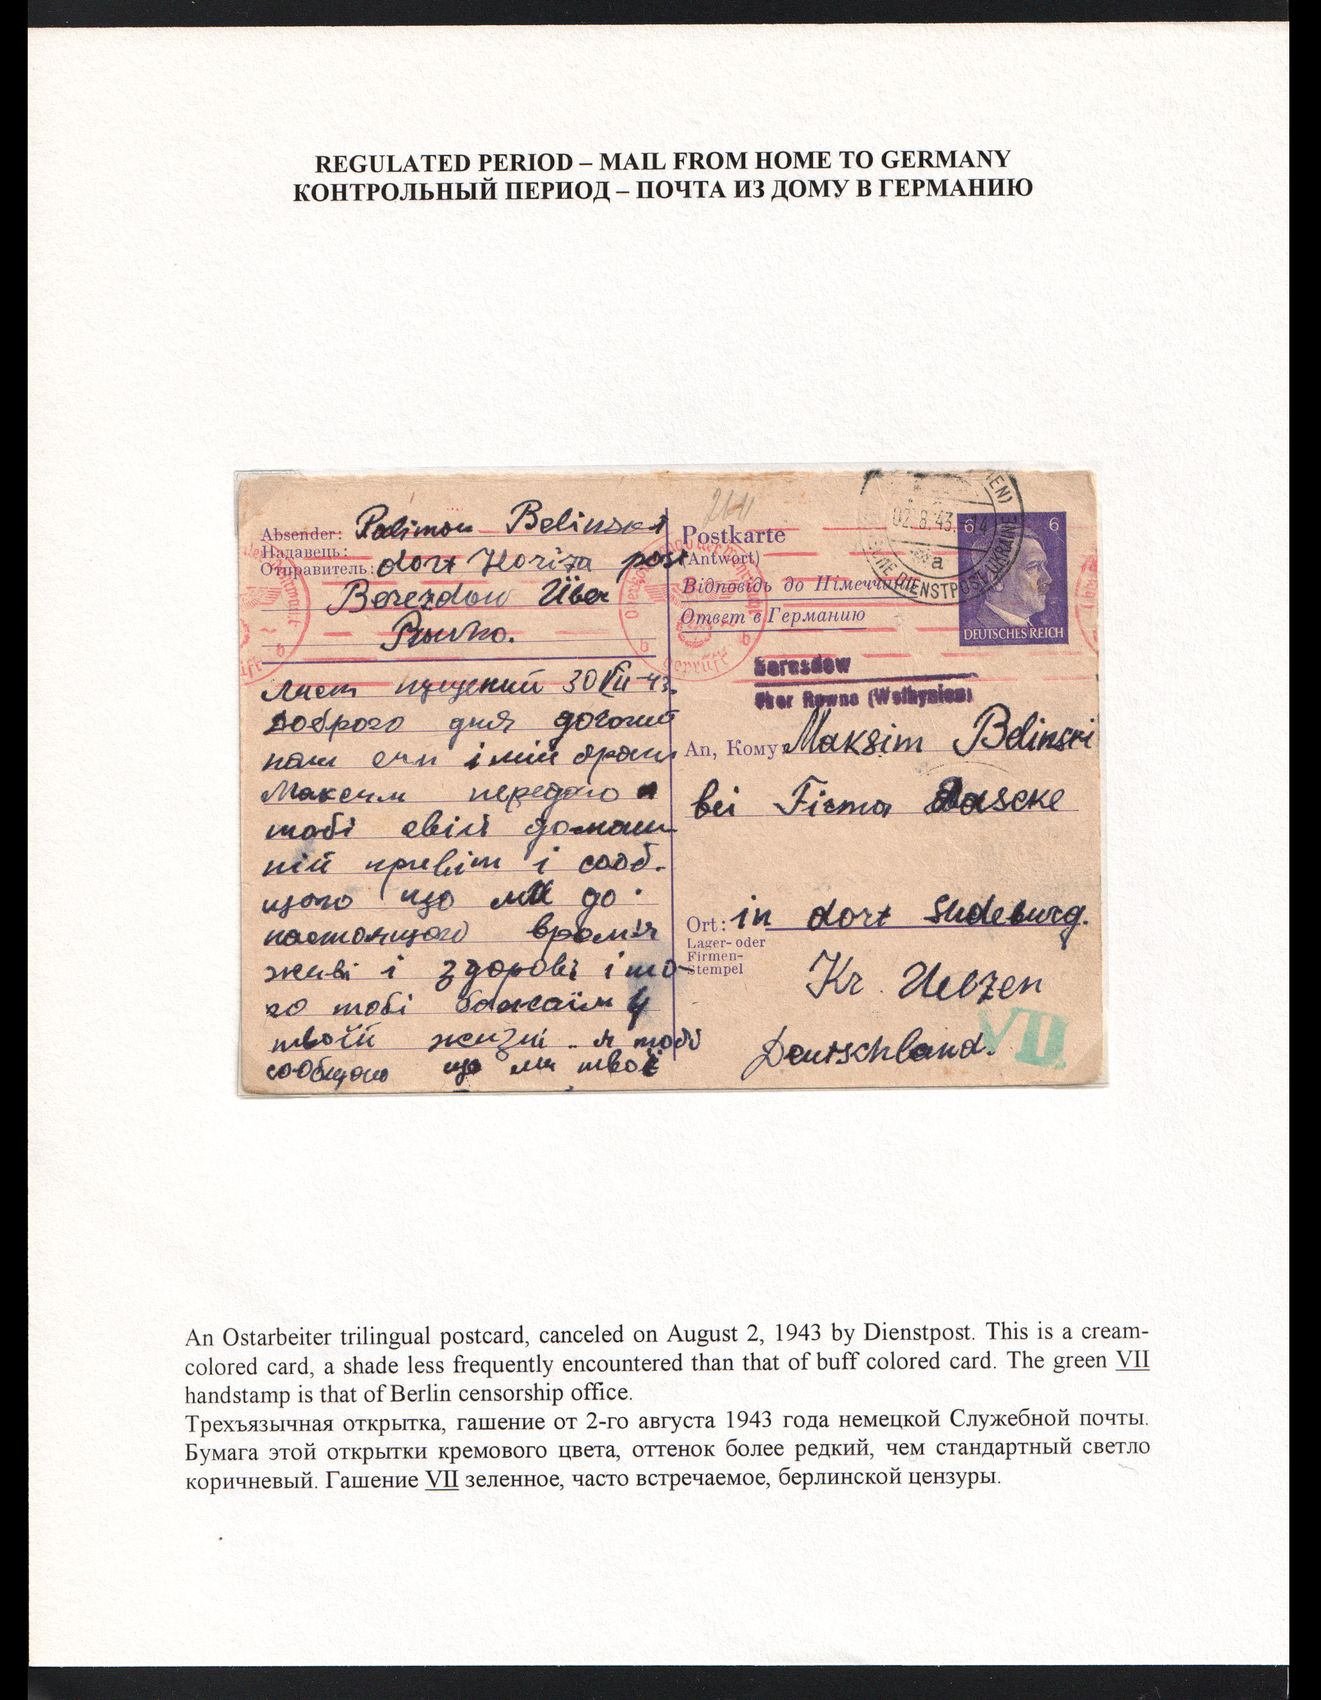 REGULATED PERIOD – MAIL FROM HOME TO GERMANY
КОНТРОЛЬНЫЙ ПЕРИОД – ПОЧТА ИЗ ДОМУ В ГЕРМАНИЮ
Absender: Belinski
Надавець:
Отправитель: dort Horiza post
Berezdow Über
Rowno.
Лист 30 VII-43.
Доброго дня догогий
наш і мій брат
Максим передаю
тобі свій домаш
ній привіт і сооб.
щаю що ми до
настоящого
живі і здорові і то-
го тобі бажаїм у
твоїй жизні я тобі
сообщаю що ми твоє
2611
Postkarte
(Antwort)
Відповідь до Німеччини
Ответ в Германию
02.8.43.-14
a
DIENSTPOST UKRAINE
6 6
DEUTSCHES REICH
Geprüft
b
über Rowno (Wolhynien)
An, Кому: Maksim Belinski
bei Firma
Ort: in dort Sudeburg.
Lager- oder
Firmen-
Stempel
Kr. Uelzen
Deutschland.
VII.
An Ostarbeiter trilingual postcard, canceled on August 2, 1943 by Dienstpost. This is a cream-
colored card, a shade less frequently encountered than that of buff colored card. The green VII
handstamp is that of Berlin censorship office.
Трехъязычная открытка, гашение от 2-го августа 1943 года немецкой Служебной почты.
Бумага этой открытки кремового цвета, оттенок более редкий, чем стандартный светло
коричневый. Гашение VII зеленное, часто встречаемое, берлинской цензуры.